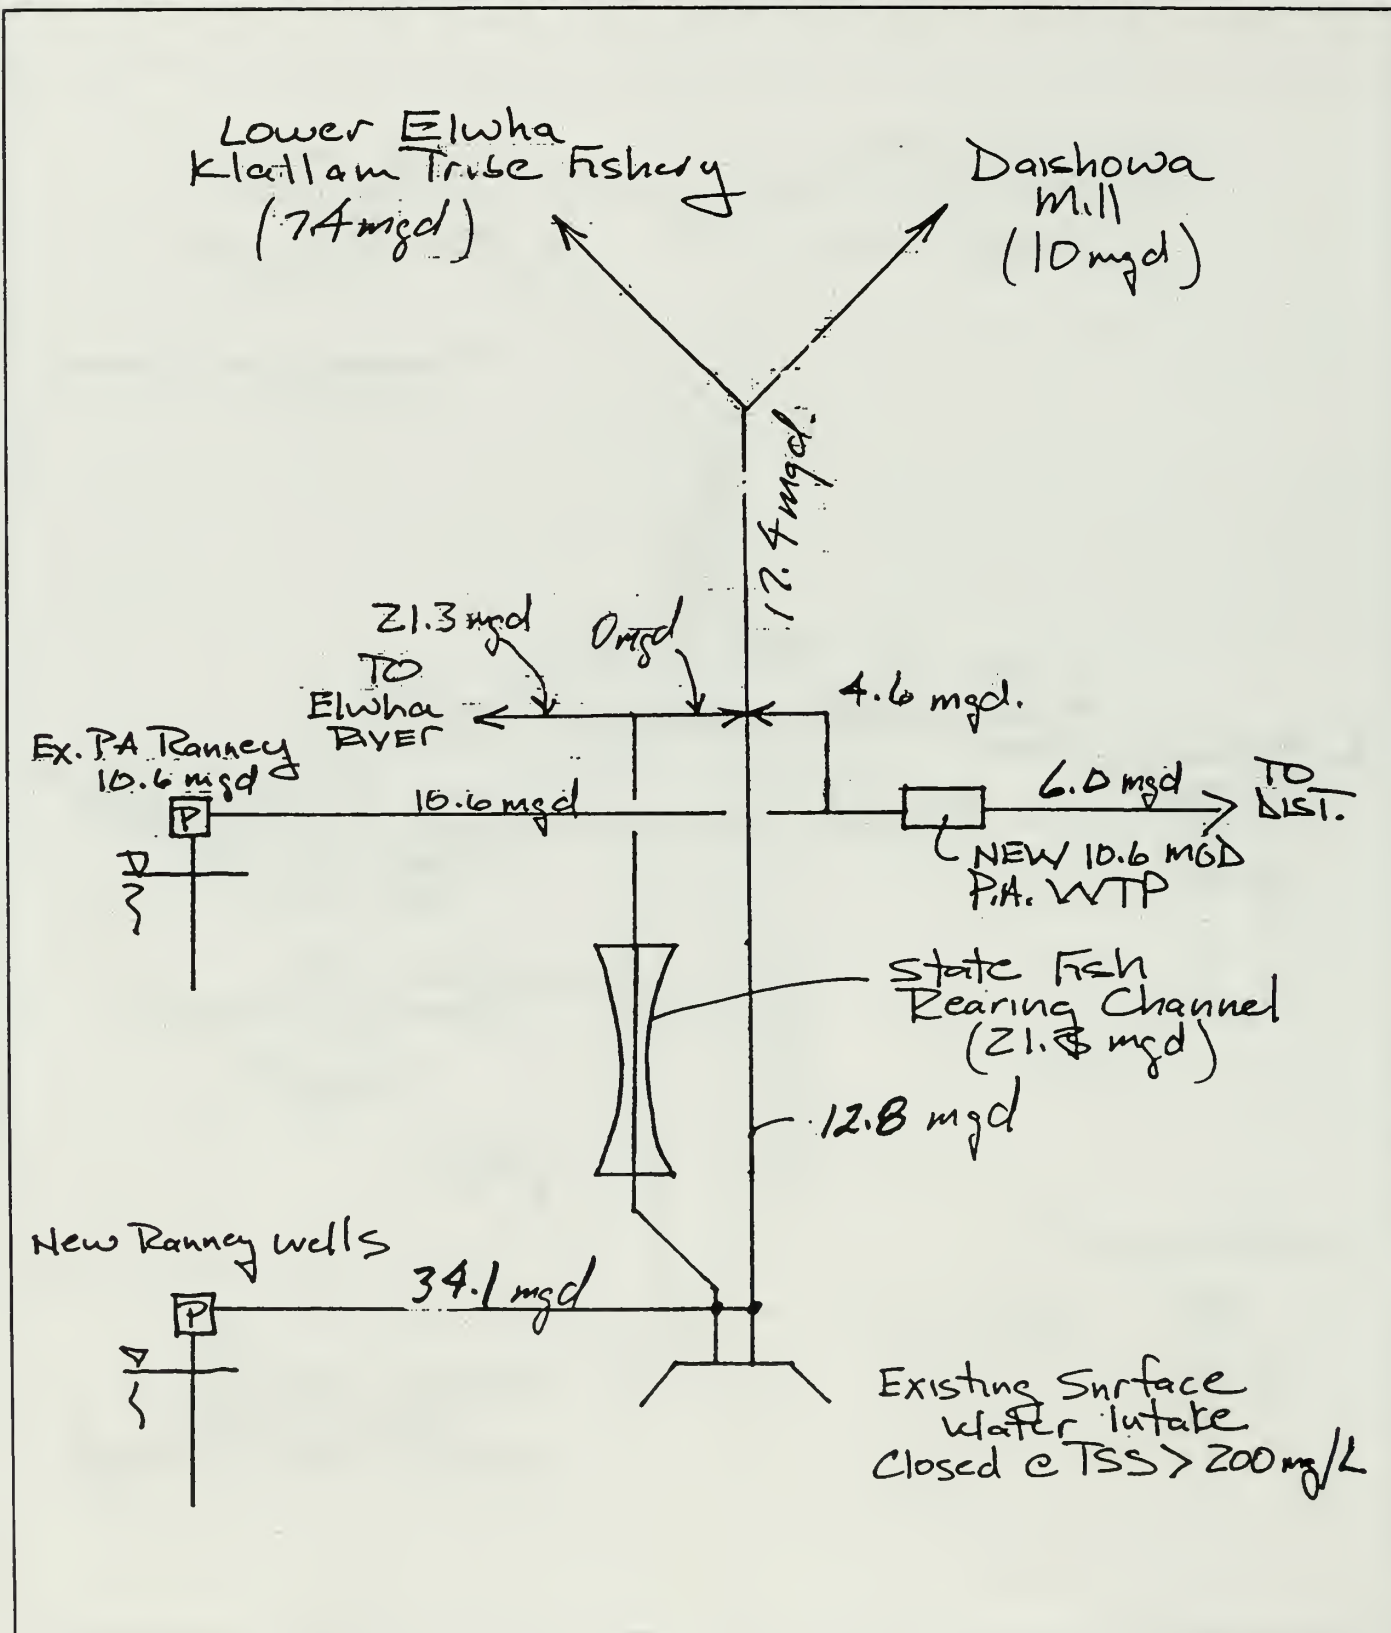 Lower Elwha
Klallam Tribe Fishery
(7.4 mgd)
Daishowa
Mill
(10 mgd)
17.4 mgd.
21.3 mgd
0 mgd
TO
Elwha
RIVER
4.6 mgd.
Ex. PA Ranney
10.6 mgd
P
10.6 mgd
6.0 mgd
TO
DIST.
NEW 10.6 MGD
P.A. WTP
State Fish
Rearing Channel
(21.3 mgd)
12.8 mgd
New Ranney wells
34.1 mgd
P
Existing Surface
Water Intake
Closed @ TSS > 200 mg/L